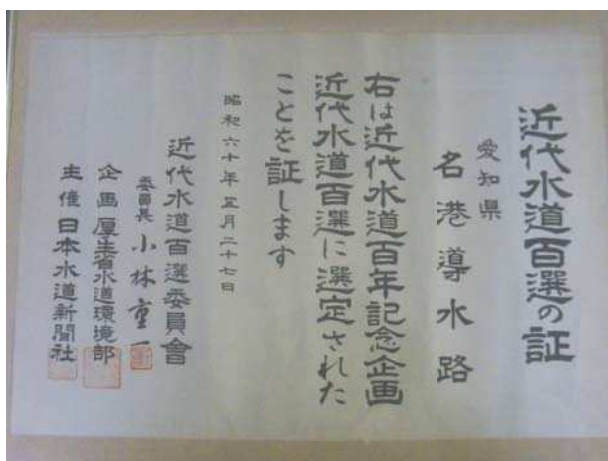 近代水道百選の証
愛知県
名港導水路
右は近代水道百年記念企画
近代水道百選に選定された
ことを証します
昭和六十年五月二十七日
近代水道百選委員會
委員長 小林重一
企画 厚生省水道環境部
主催 日本水道新聞社